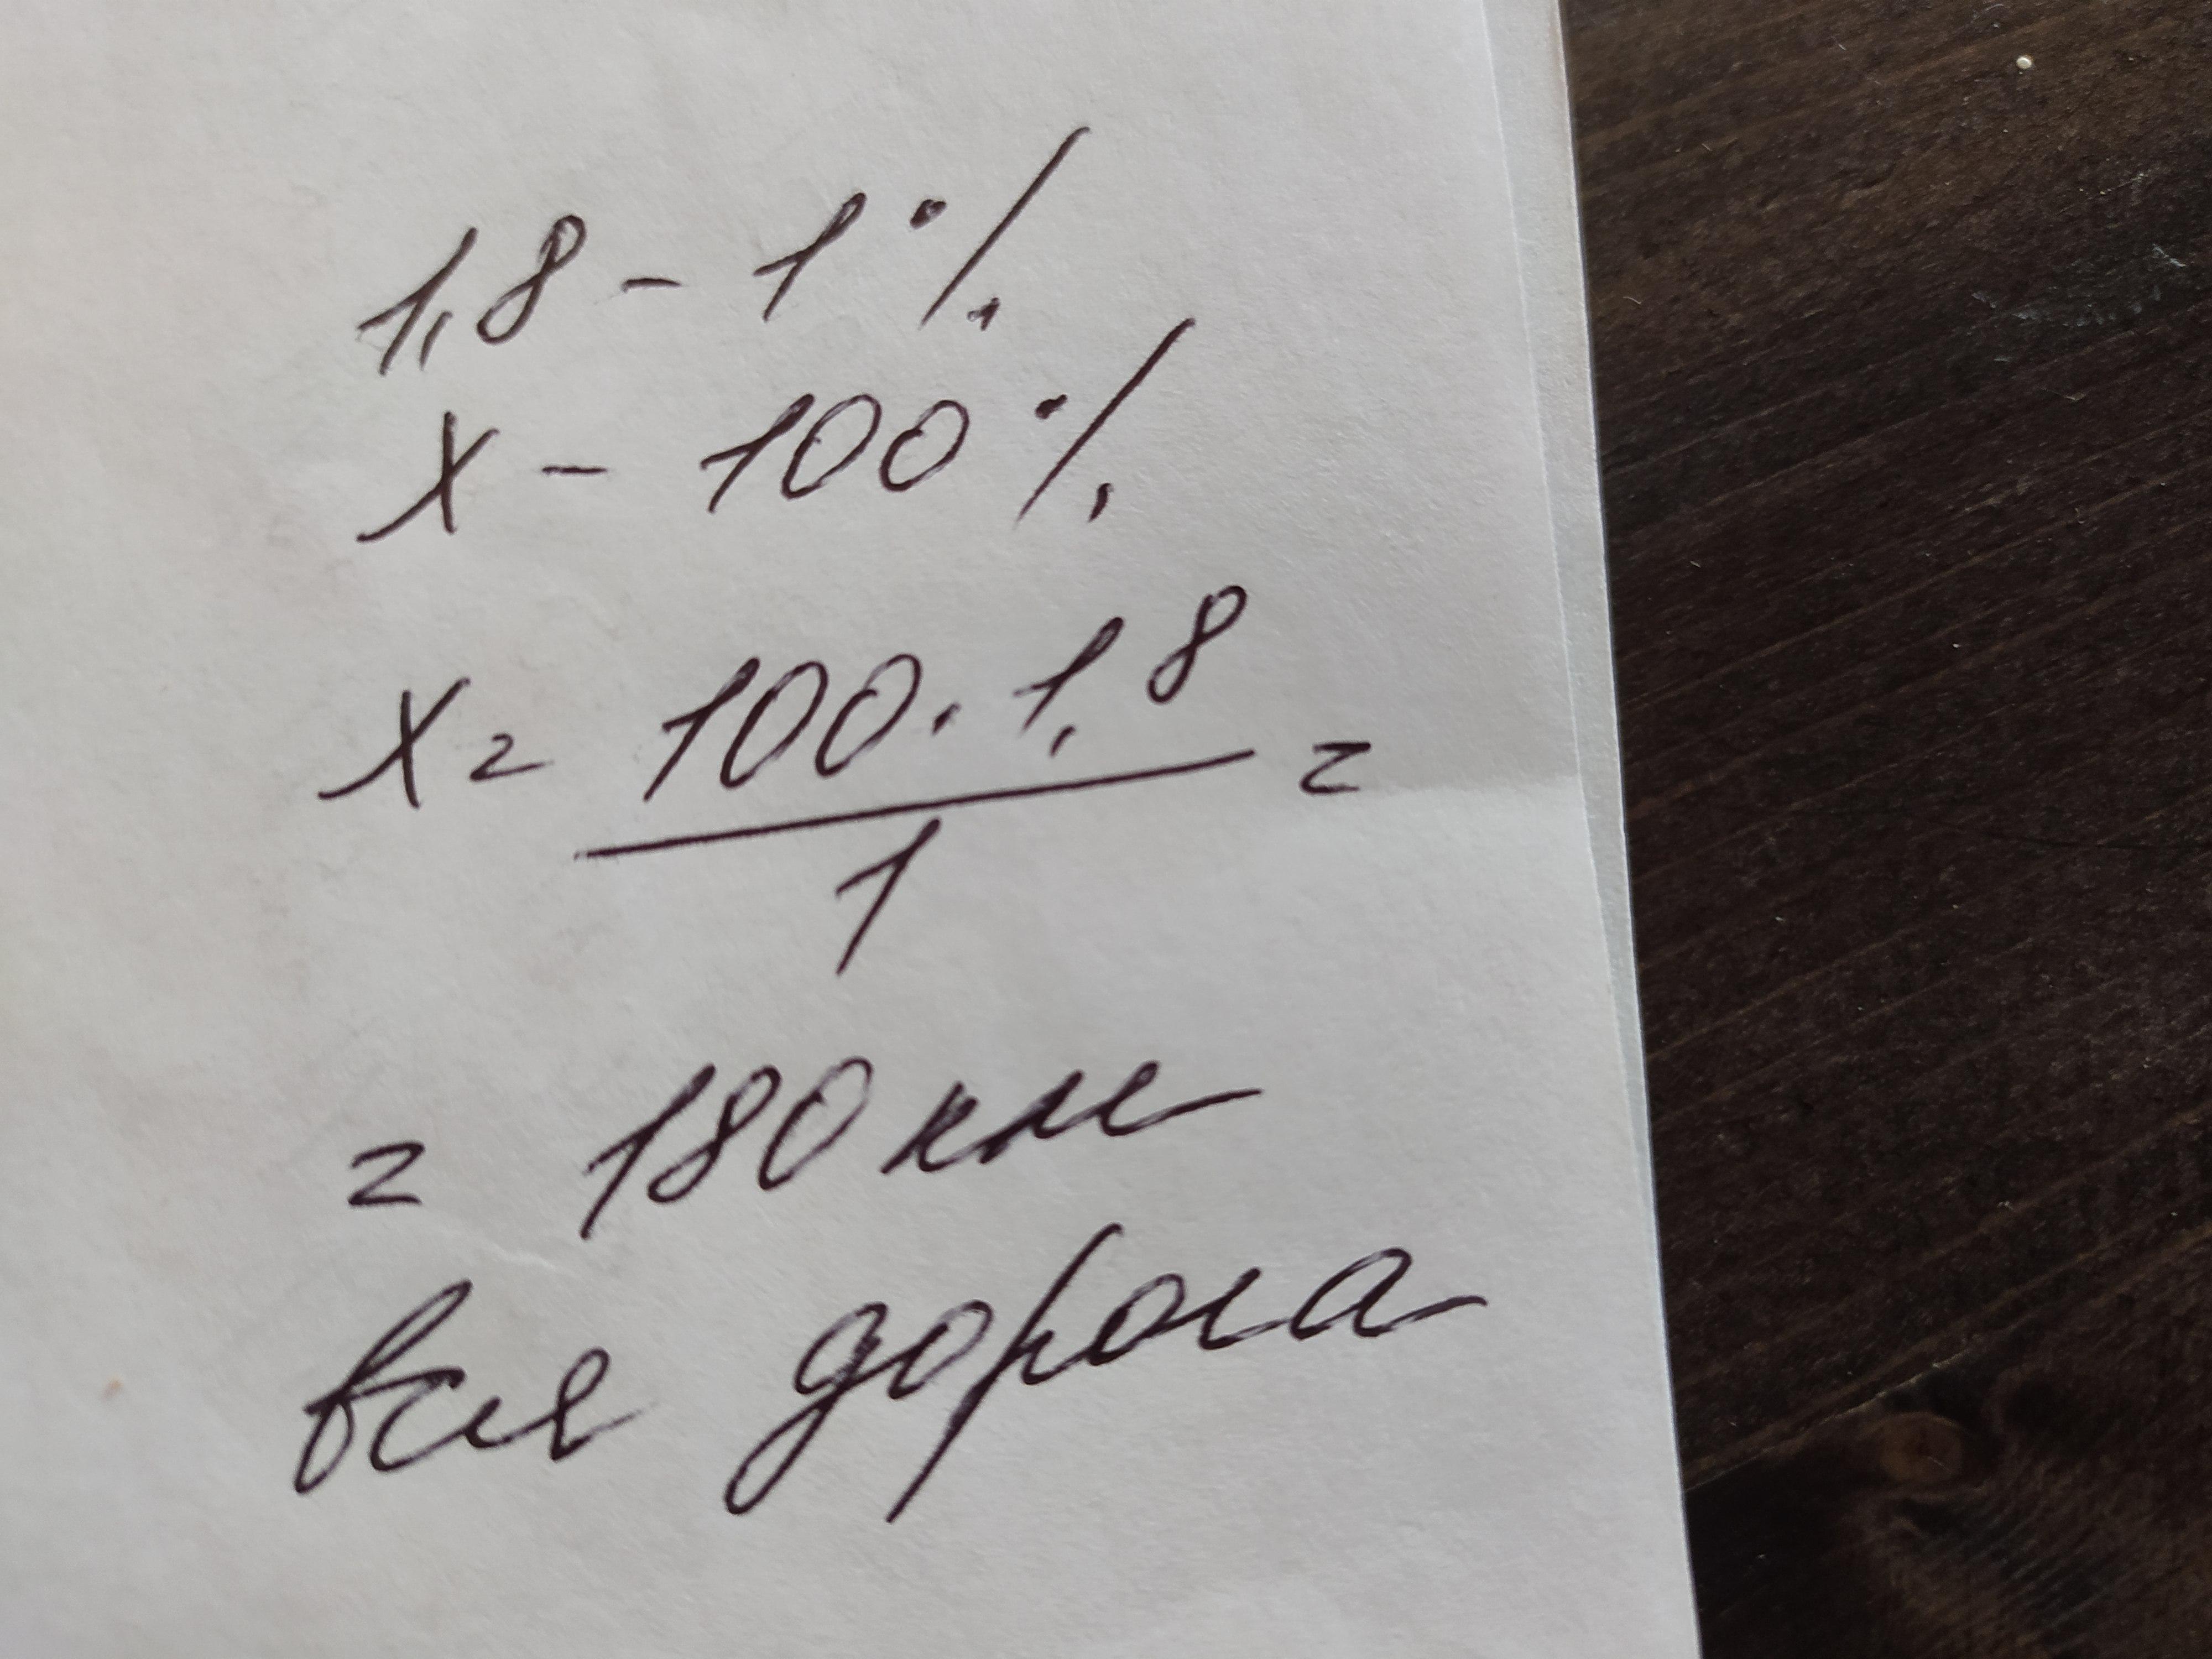 1,8 - 1%
x - 100%
x = 100 · 1,8 / 1 =
= 180 км
вся дорога